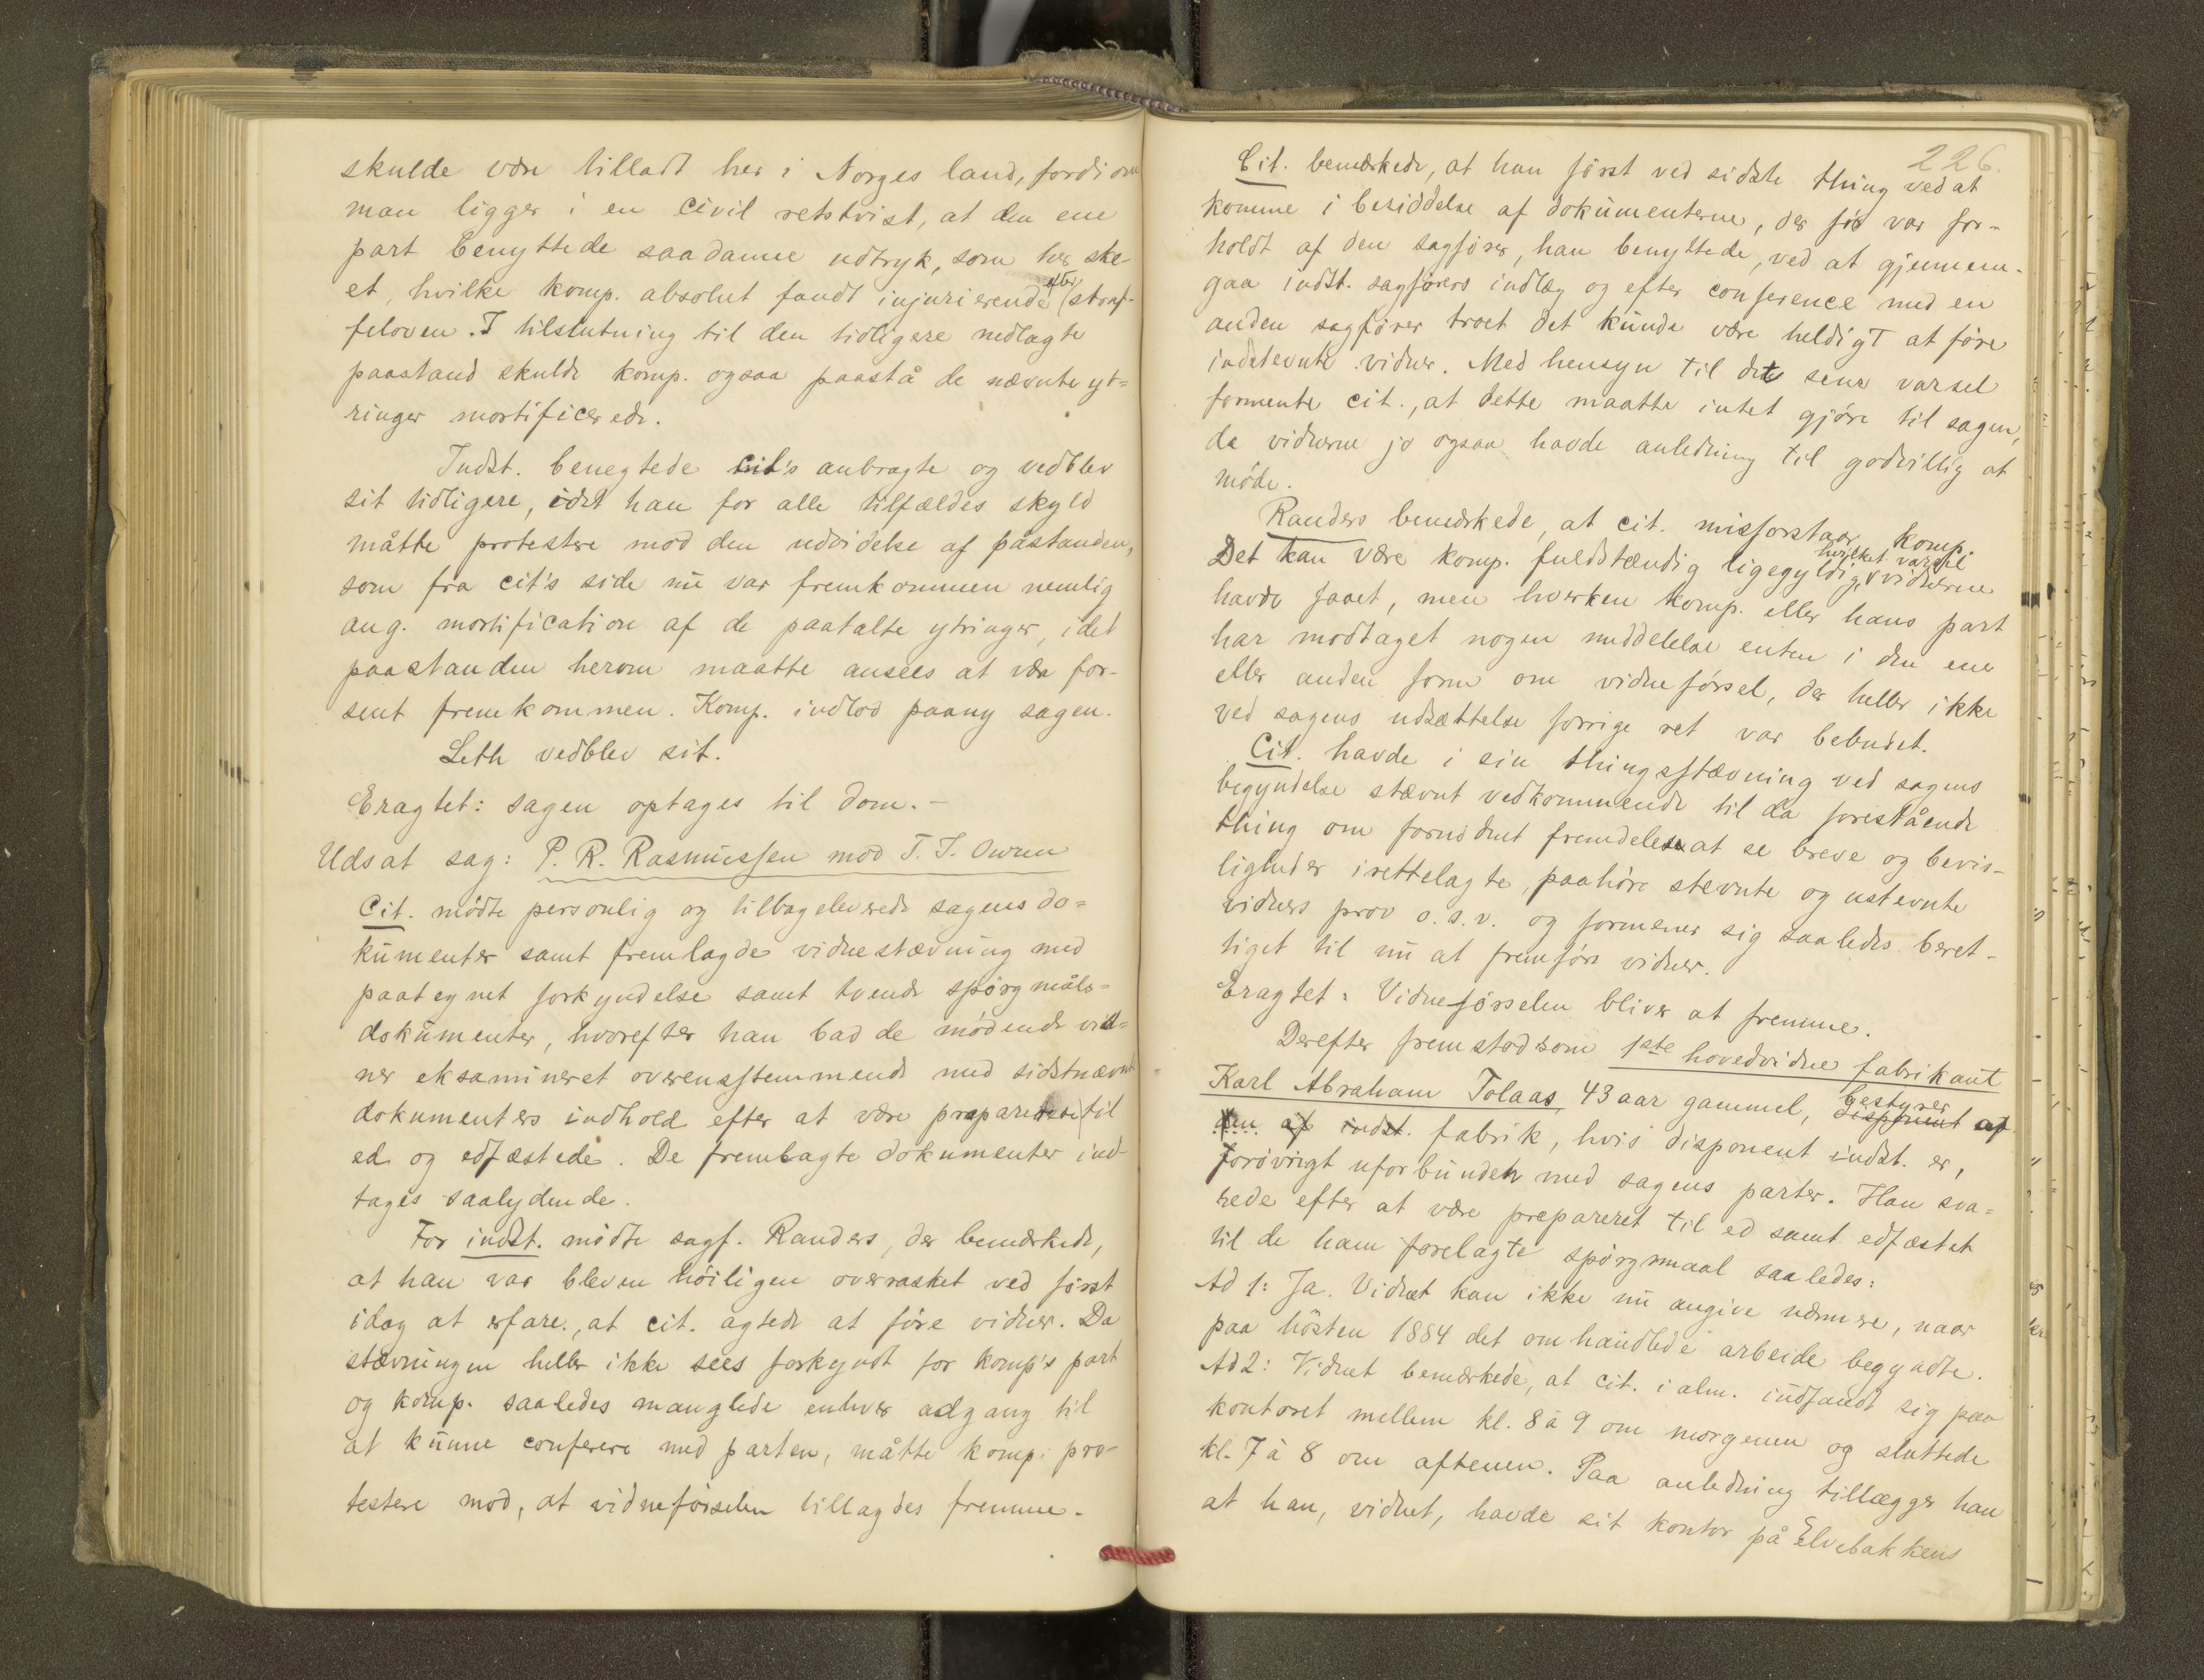 skulde være tilladt her i Norges land, fordi om
man ligger i en civil retstvist, at den ene
part benyttede saadanne udtryk, som her ske-
et, hvilke komp. absolut fandt injurierende efter straf-
feloven. I tilslutning til den tidligere nedlagte
paastand skulde komp. ogsaa paastå de nævnte yt=
ringer mortificerede.
Indst. benegtede cit's anbragte og vedblev
sit tidligere, idet han for alle tilfældes skyld
måtte protestere mod den udvidelse af påstanden,
som fra cit's side nu var fremkommen nemlig
ang. mortification af de paatalte ytringer, idet
paastanden herom maatte ansees at være for-
sent fremkommen. Komp. indlod paany sagen.
Leth vedblev sit.
Eragtet: sagen optages til dom. –
Udsat sag: P. R. Rasmussen mod T. J. Owren
Cit. mødte personlig og tilbageleverede sagens do=
kumenter samt fremlagde vidnestævning med
paategnet forkyndelse samt tvende spørgmåls=
dokumenter, hvorefter han bad de mødende vid=
ner eksamineret overensstemmende med sidstnævnte
dokumenters indhold efter at være præparerede til
ed og edfæstede. De fremlagte dokumenter ind-
tages saalydende.
For indst. mødte sagf. Randers, der bemærkede,
at han var bleven høiligen overrasket ved først
idag at erfare, at cit. agtede at føre vidner. Da
stævningen heller ikke sees forkyndt for komp's part
og komp. saaledes manglede enhver adgang til
at kunne conferere med parten, måtte komp. pro-
testere mod, at vidneførselen tillagdes fremme.
226.
Cit. bemærkede, at han først ved sidste thing ved at
komme i besiddelse af dokumenterne, der før var for-
holdt af den sagfører, han benyttede, ved at gjennem-
gaa indst. sagførers indlæg og efter conference med en
anden sagfører troet det kunde være heldigt at føre
indstevnte vidner. Med hensyn til det sene varsel
formente cit., at dette maatte intet gjøre til sagen,
da vidnerne jo ogsaa havde anledning til godvillig at
møde.
Randers bemærkede, at cit. misforstaar komp.
Det kan være komp. fuldstændig ligegyldig, hvilket varsel vidnerne
havde faaet, men hverken komp. eller hans part
har modtaget nogen meddelelse enten i den ene
eller anden form om vidneførsel, der heller ikke
ved sagens udsættelse forrige ret var bebudet.
Cit. havde i sin thingsstævning ved sagens
begyndelse stævnt vedkommende til da forestående
thing om fornødent fremdeles at se breve og bevis-
ligheder irettelagte, paahøre stevnte og ustevnte
vidners prov o.s.v. og formener sig saaledes beret-
tiget til nu at fremføre vidner.
Eragtet: Vidneførselen bliver at fremme.
Derefter fremstod som 1ste hovedvidne fabrikant
Karl Abraham Tolaas, 43 aar gammel, disponent bestyrer af
den af indst. fabrik, hvis disponent indst. er,
forøvrigt uforbunden med sagens parter. Han sva=
rede efter at være prepareret til ed samt edfæstet
til de ham forelagte spørgmaal saaledes:
Ad 1: Ja. Vidnet kan ikke nu angive nærmere, naar
paa høsten 1884 det omhandlede arbeide begyndte.
Ad 2: Vidnet bemærkede, at cit. i alm. indfandt sig paa
kontoret mellem kl. 8 à 9 om morgenen og sluttede
kl. 7 à 8 om aftenen. Paa anledning tillægger han
at han, vidnet, havde sit kontor på Elvebakkens